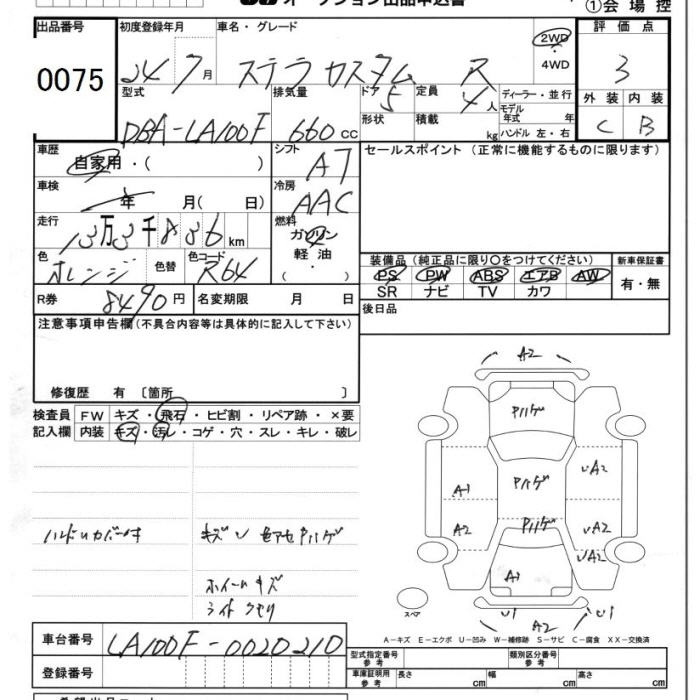 オークション出品申込書
①会場控
出品番号
0075
初度登録年月
24 7月
車名・グレード
ステラ カスタム R
2WD
4WD
評価点
3
型式
DBA-LA100F
排気量
660 cc
ドア
5
定員
4人
ディーラー・並行
形状
積載
kg
モデル年式 年
ハンドル 左・右
外装 内装
C B
車歴
自家用・( )
シフト
AT
セールスポイント (正常に機能するものに限ります)
車検
年 月( 日)
冷房
AAC
走行
13万3千836km
燃料
ガソリン
軽油
( ・ )
色
オレンジ
色替
色コード
R64
装備品(純正品に限り〇をつけてください)
新車保証書
PS PW ABS エアB AW
SR ナビ TV カワ
有・無
R券
8490円
名変期限 月 日
後日品
注意事項申告欄(不具合内容等は具体的に記入して下さい)
修復歴 有 〔箇所 〕
検査員記入欄
FW キズ・飛石・ヒビ割・リペア跡・×要
内装 キズ・汚レ・コゲ・穴・スレ・キレ・破レ
ハンドルカバー付
キズU 色アセ クリハゲ
ホイールキズ
ライトクモリ
A2
クリハゲ
クリハゲ
クリハゲ
A1
A2
UA2
UA2
UA2
A1
U1
U1
スペア
A-キズ E-エクボ U-凹み W-補修跡 S-サビ C-腐食 XX-交換済
車台番号
LA100F-0020210
登録番号
型式指定番号 参考
類別区分番号 参考
車庫証明用 参考
長さ cm 幅 cm 高さ cm